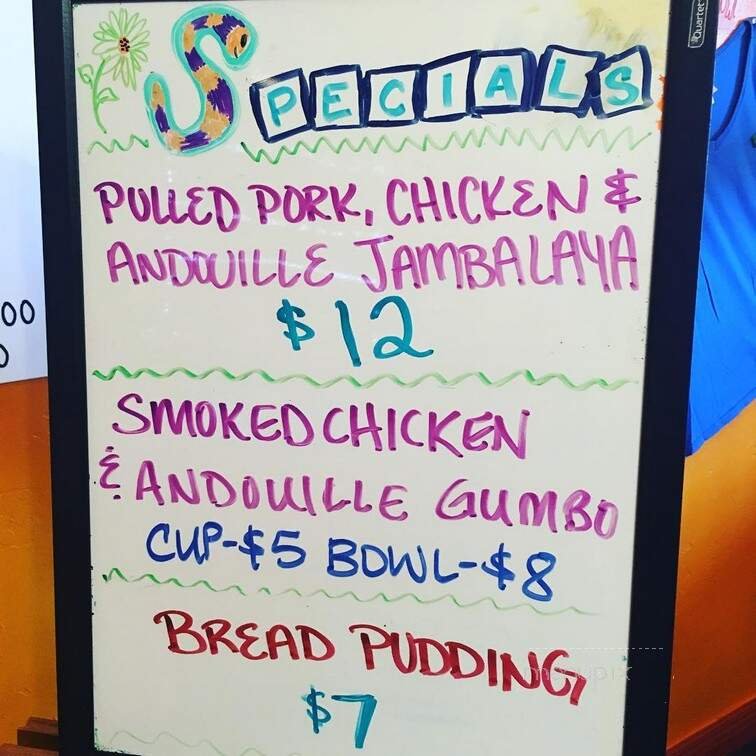 Quartet
SPECIALS
PULLED PORK, CHICKEN &
ANDOUILLE JAMBALAYA
$12
SMOKED CHICKEN
& ANDOUILLE GUMBO
CUP-$5 BOWL-$8
BREAD PUDDING
$7
menupix
00
0